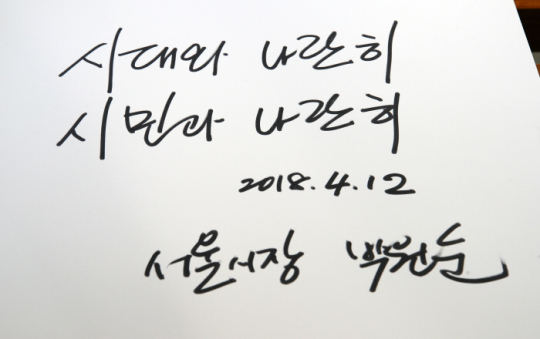 시대와 나란히
시민과 나란히
2018.4.12
서울시장 박원순